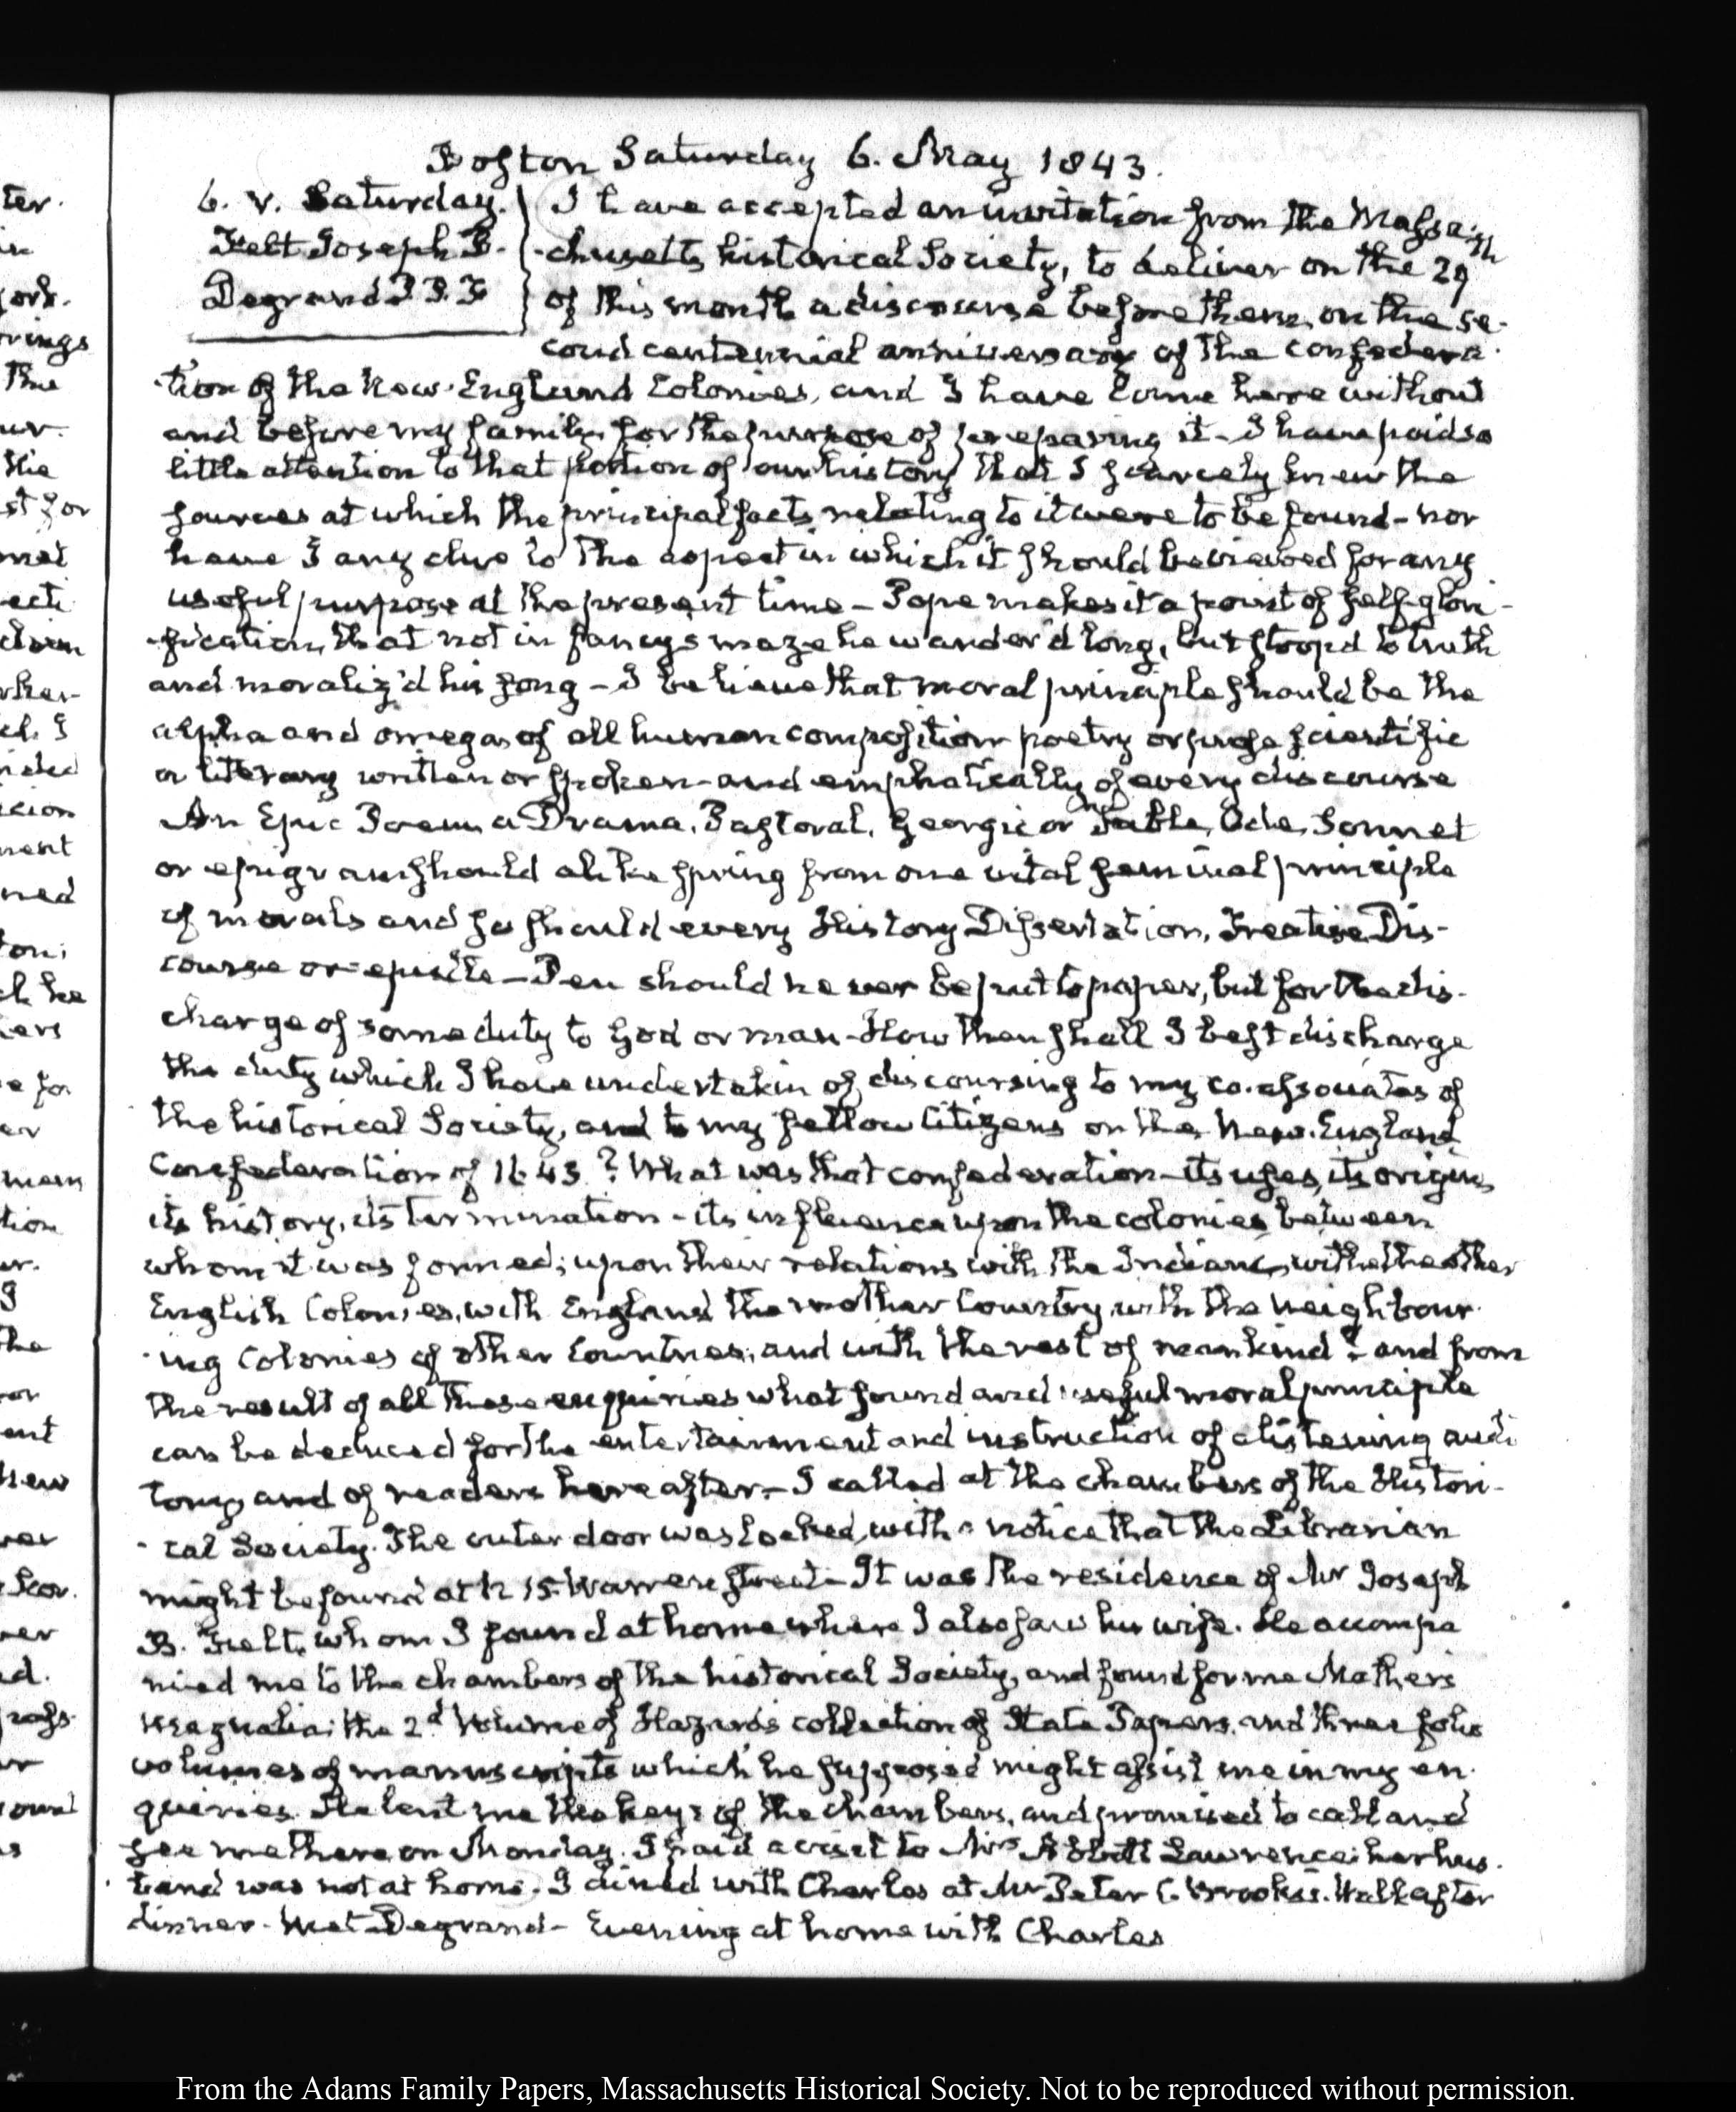 Boston Saturday 6. May 1843.
6. V. Saturday.
Felt Joseph B.
Degrand P. P. F
I have accepted an invitation from the Massa-
chusetts historical Society, to deliver on the 29th
of this month a discourse before them, on the se-
cond centennial anniversary of the confedera-
tion of the New-England Colonies, and I have come here without
and before my family, for the purpose of preparing it - I have paid so
little attention to that portion of our history that I scarcely knew the
sources at which the principal facts relating to it were to be found - nor
have I any clue to the aspect in which it should be viewed for any
useful purpose at the present time - Pope makes it a point of self-glori-
fication, that not in fancy's maze he wander'd long, but stoop'd to truth
and moraliz'd his song - I believe that moral principle should be the
alpha and omega of all human composition poetry or prose scientific
or literary written or spoken - and emphatically of every discourse
An Epic Poem a Drama, Pastoral, Georgic or Fable, Ode, Sonnet
or epigram should alike spring from one vital seminal principle
of morals and so should every History Dissertation, Treatise Dis-
course or epistle - Pen should never be put to paper, but for the dis-
charge of some duty to God or man - How then shall I best discharge
the duty which I have undertaken of discoursing to my co-associates of
the historical Society, and to my fellow Citizens on the New-England
Confederation of 1643? What was that confederation - its uses, its origin,
its history, its termination - its influence upon the colonies between
whom it was formed; upon their relations with the Indians, with the other
English Colonies, with England the mother Country, with the neighbour-
ing Colonies of other Countries; and with the rest of mankind? - and from
the result of all these enquiries what sound and useful moral principle
can be deduced for the entertainment and instruction of a listening audi
tory, and of readers hereafter - I called at the chambers of the Histori-
cal Society. The outer door was locked, with a notice that the Librarian
might be found at N 15. Warren Street - It was the residence of Mr Joseph
B. Felt, whom I found at home where I also saw his wife. He accompa
nied me to the chambers of the historical Society, and found for me Mather's
Magnalia; the 2d. Volume of Hazard's collection of State Papers, and three folio
volumes of manuscripts which he supposed might assist me in my en-
quiries. He lent me the keys of the chambers, and promised to call and
see me there on Monday. I paid a visit to Mrs Abbott Lawrence; her hus-
band was not at home. I dined with Charles at Mr Peter C. Brooks's. Walk after
dinner - Met Degrand - Evening at home with Charles
From the Adams Family Papers, Massachusetts Historical Society. Not to be reproduced without permission.